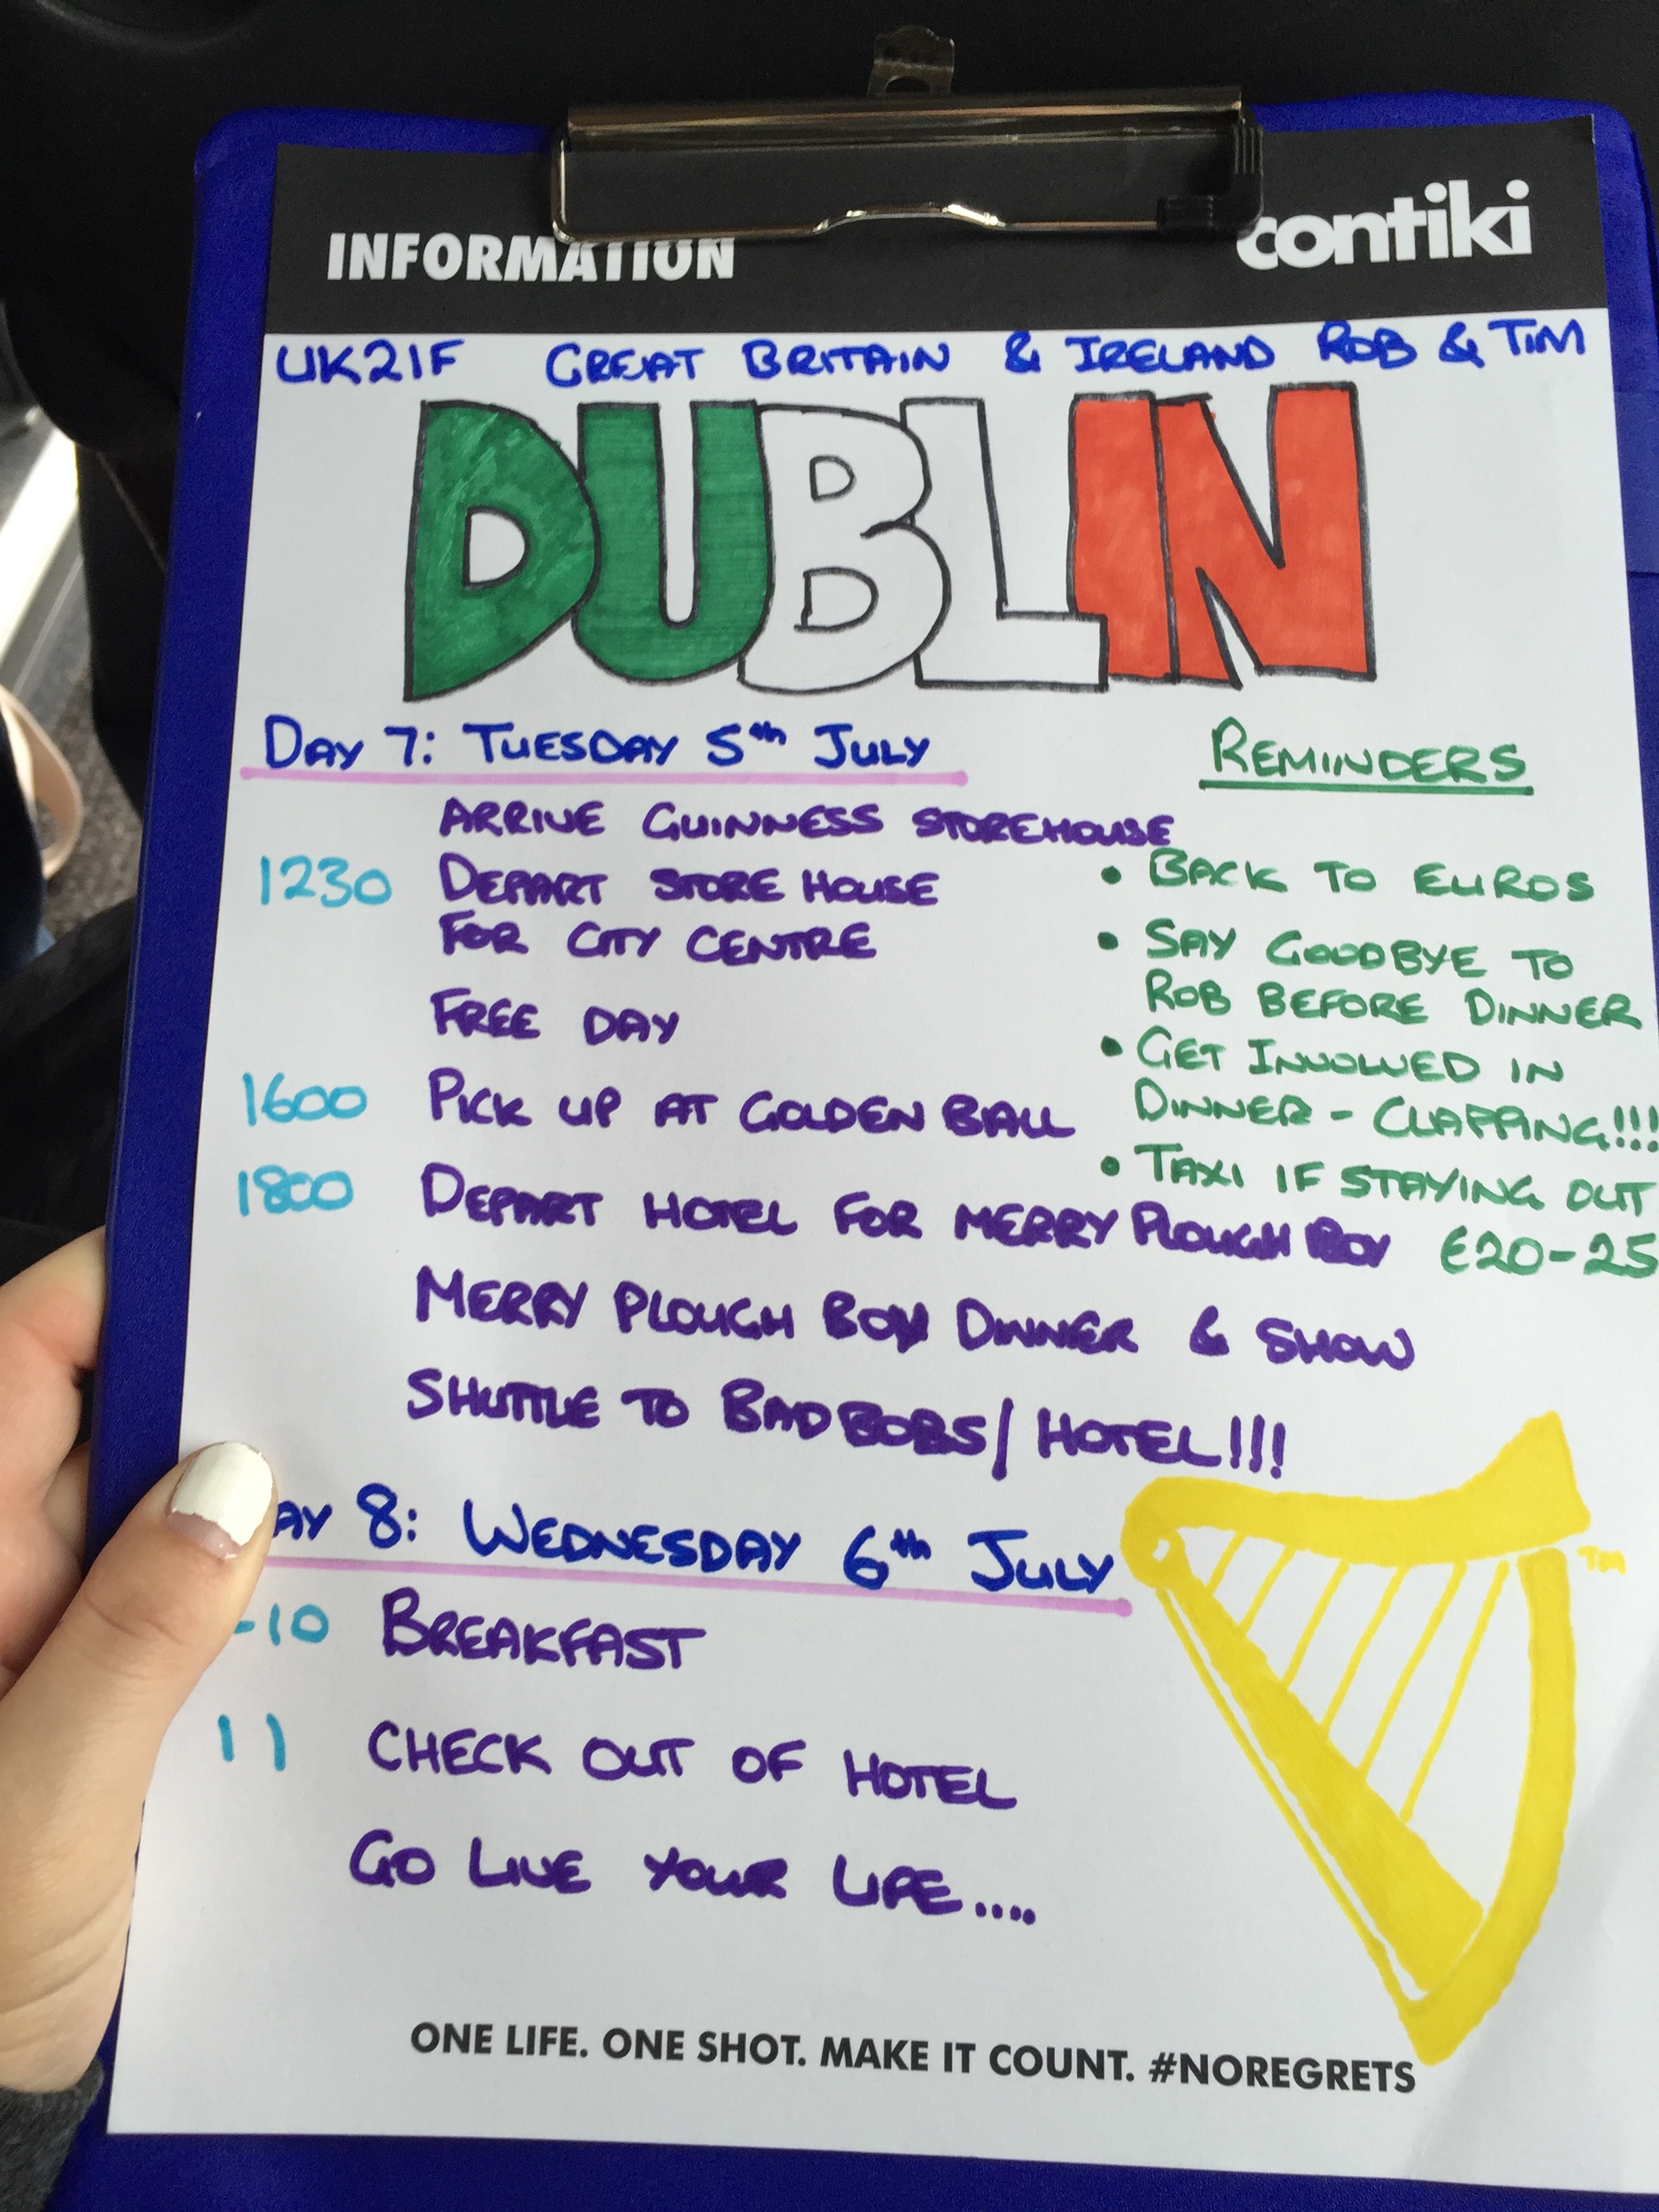 INFORMATION
contiki
UK21F GREAT BRITAIN & IRELAND ROB & TIM
DUBLIN
DAY 7: TUESDAY 5th JULY
ARRIVE GUINNESS STOREHOUSE
1230 DEPART STORE HOUSE
FOR CITY CENTRE
FREE DAY
1600 PICK UP AT GOLDEN BALL
1800 DEPART HOTEL FOR MERRY PLOUGH BOY
MERRY PLOUGH BOY DINNER & SHOW
SHUTTLE TO BADBOBS/HOTEL!!!
REMINDERS
• BACK TO EUROS
• SAY GOODBYE TO
ROB BEFORE DINNER
• GET INVOLVED IN
DINNER - CLAPPING!!!
• TAXI IF STAYING OUT
€20-25
AY 8: WEDNESDAY 6th JULY
-10 BREAKFAST
11 CHECK OUT OF HOTEL
GO LIVE YOUR LIFE....
TM
ONE LIFE. ONE SHOT. MAKE IT COUNT. #NOREGRETS